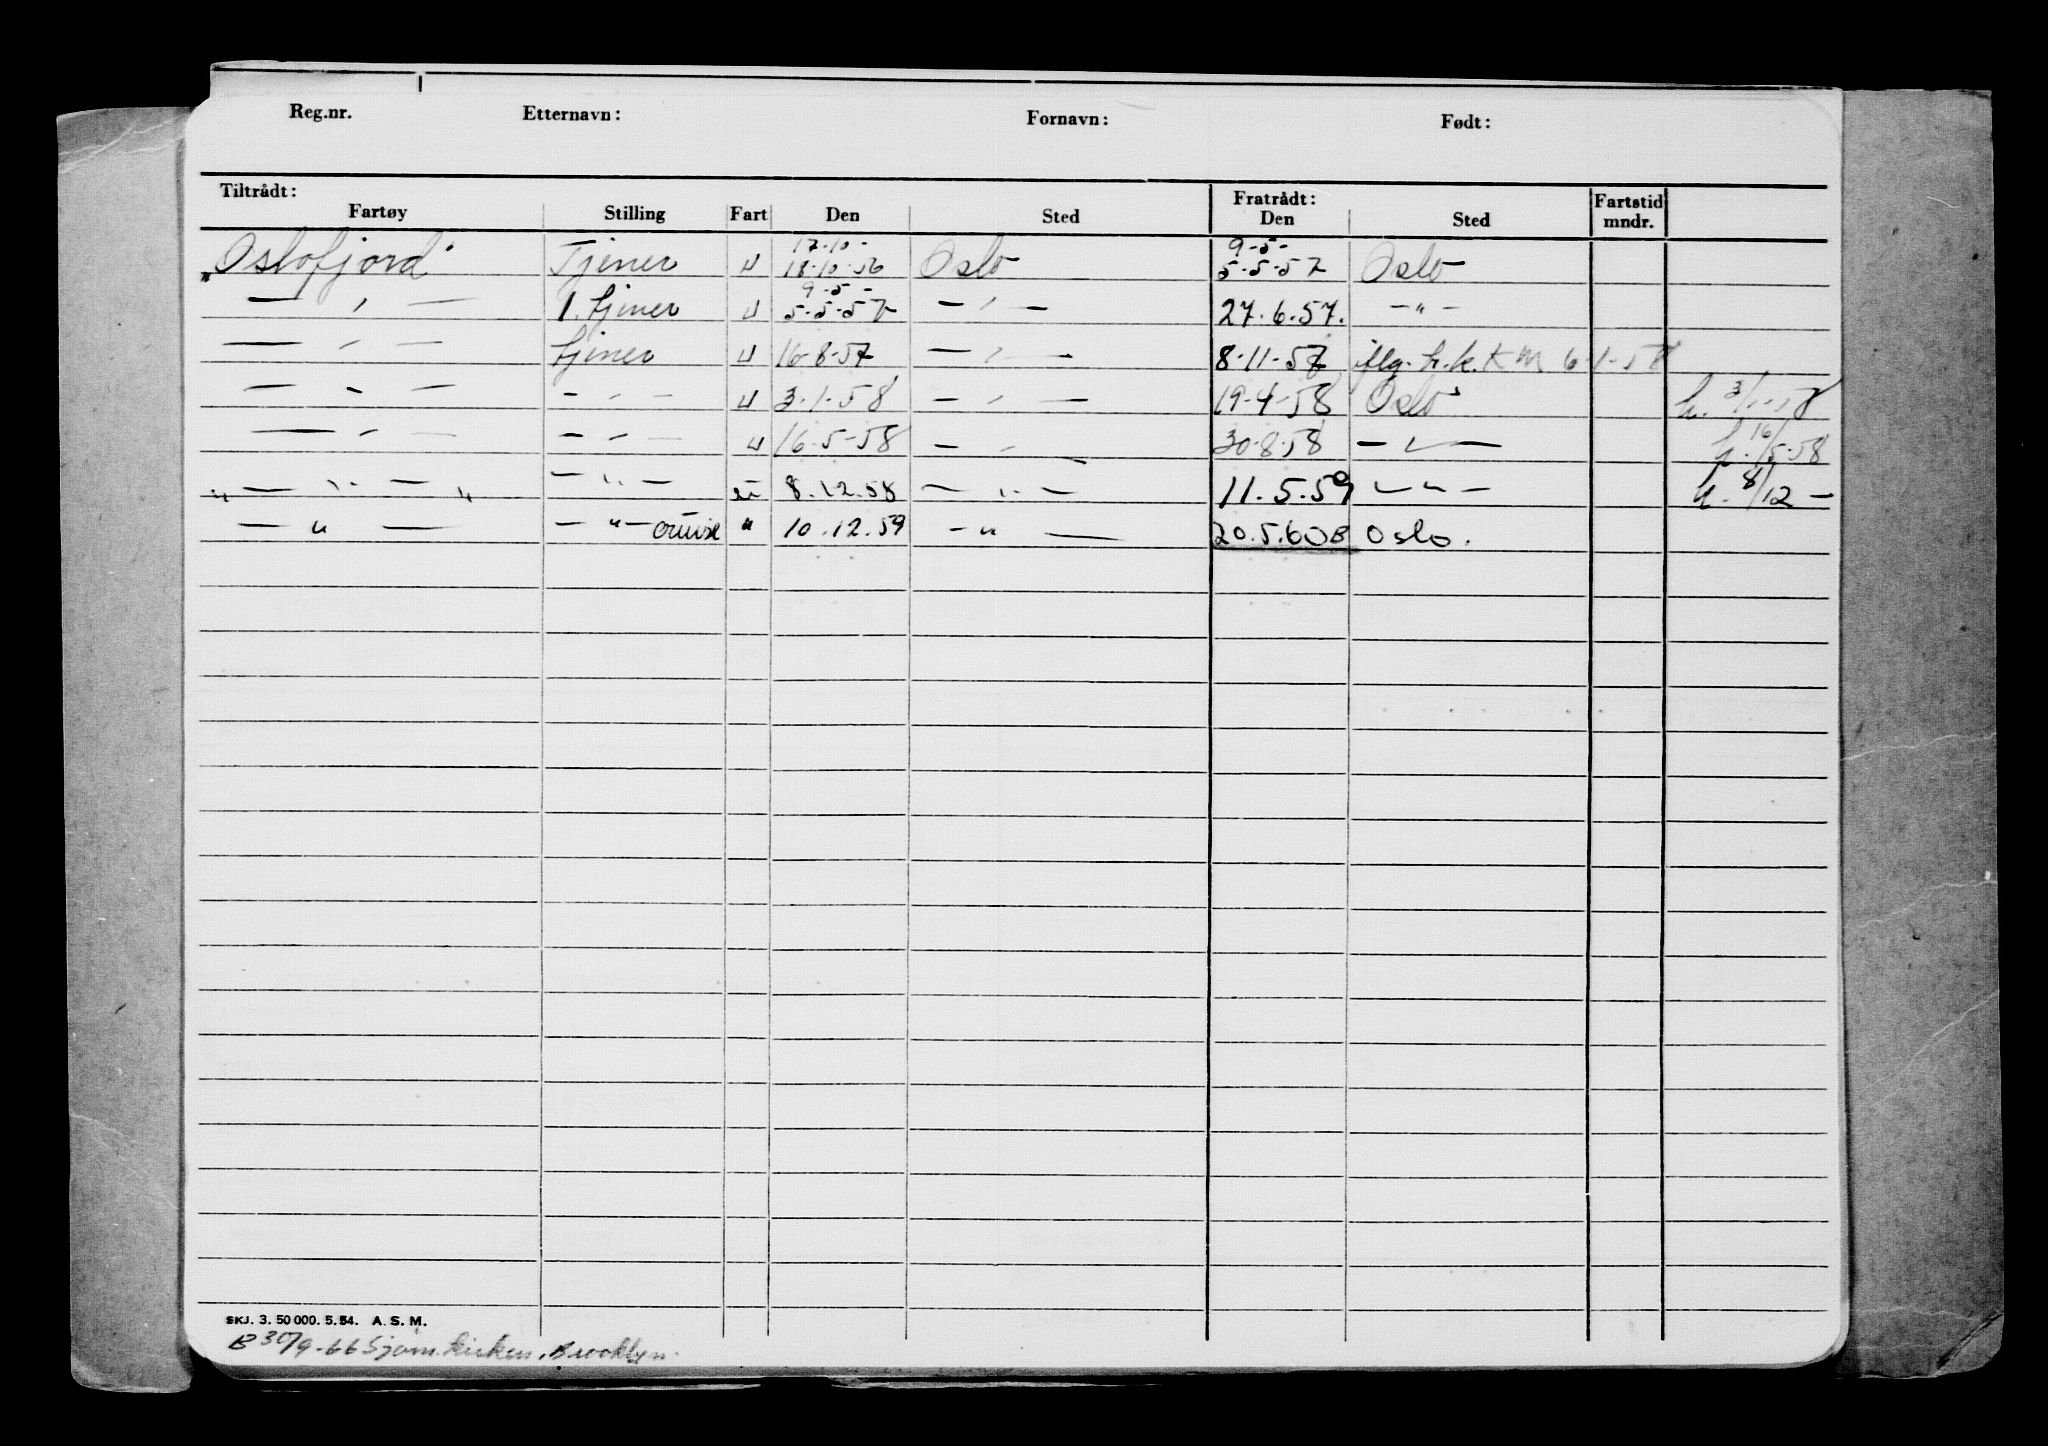 Reg.nr. Etternavn: Fornavn: Født:
Tiltrådt: Fratrådt: Fartstid
Fartøy Stilling Fart Den Sted Den Sted mndr.
17-10- 9-5-
"Oslofjord" Tjener u 18-10-56 Oslo 5-5-57 Oslo
9-5-
— " — 1. tjener u 5-5-57 — " — 27.6.57. — " —
— " — tjener u 16-8-57 — " — 8-11-57 iflg. h.k. K M 6-1-58
— " — — " — u 3-1-58 — " — 19-4-58 Oslo h. 3/1-58
— " — — " — u 16-5-58 — " — 30-8-58 — " — h. 16/5-58
" — " — " — " — 8.12.58 — " — 11.5.59 — " — h. 8/12 —
— " — — " — cruise " 10.12.59 — " — 20.5.60 B Oslo.
SKJ. 3. 50 000. 5. 54. A. S. M.
B 30/9-66 Sjøm.kirken, Brooklyn.